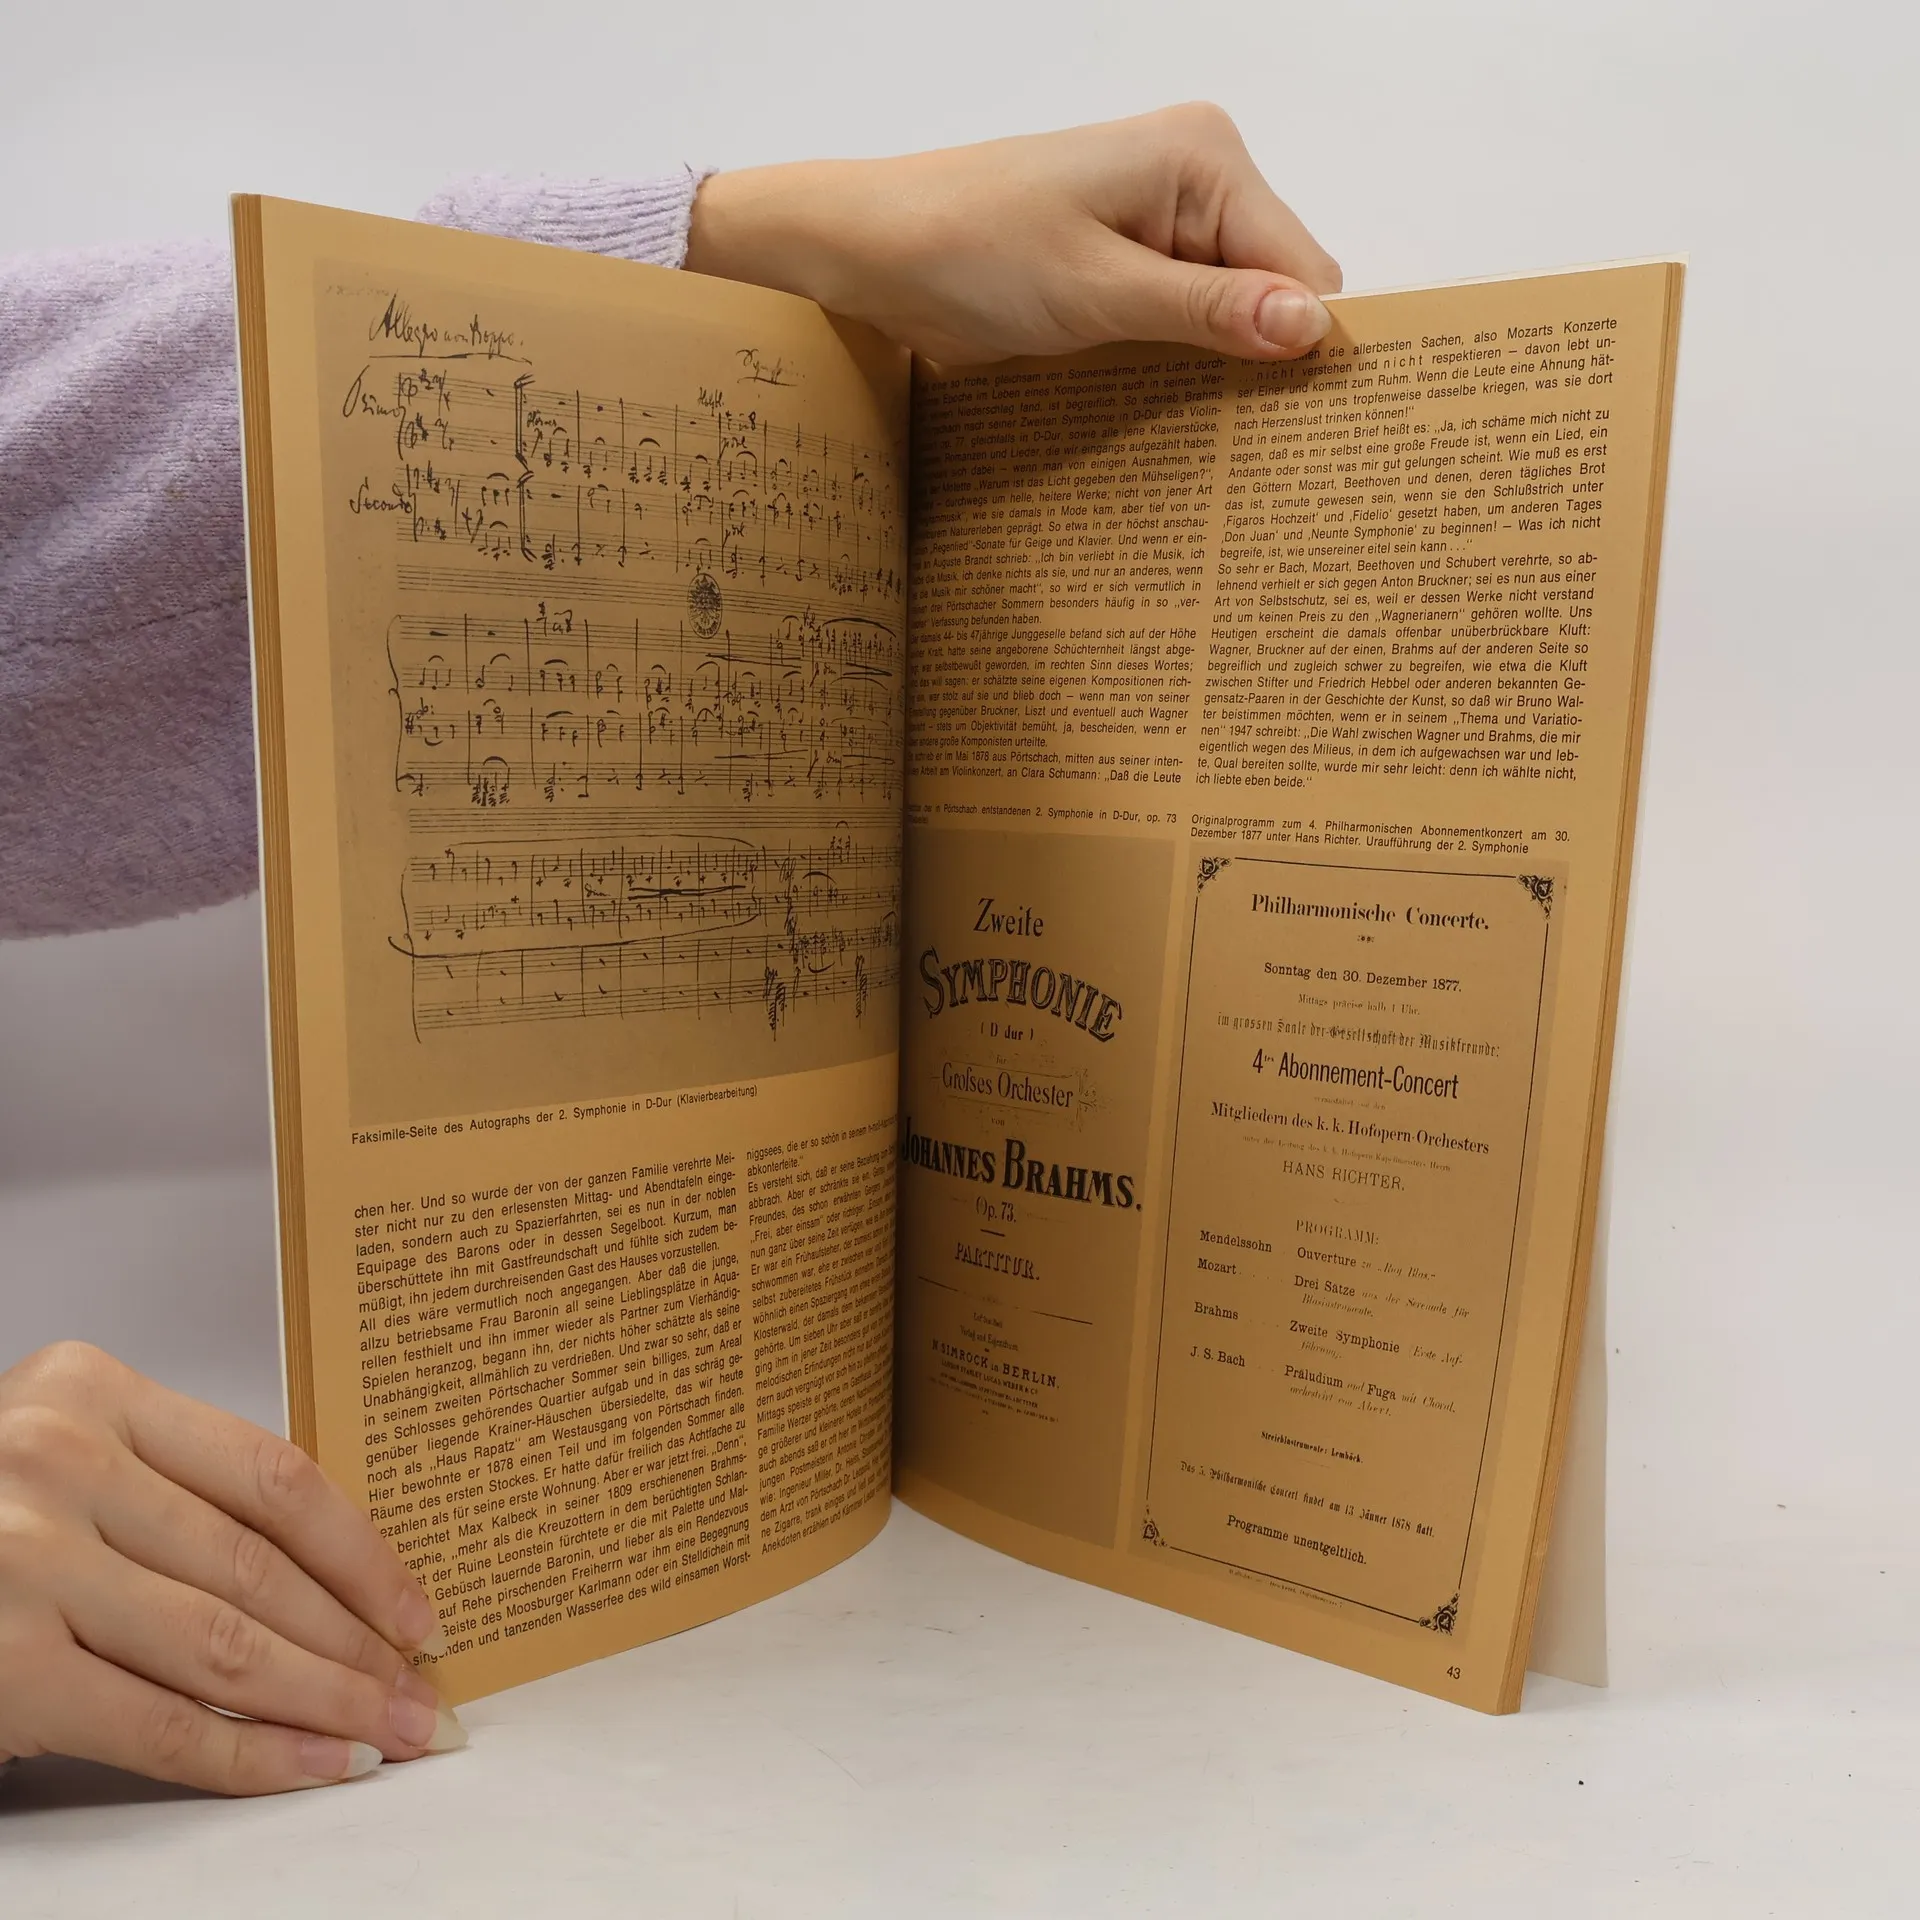 Allegro non troppo.
Primo
Secondo
Faksimile-Seite des Autographs der 2. Symphonie in D-Dur (Klavierbearbeitung)
chen her. Und so wurde der von der ganzen Familie verehrte Mei-
ster nicht nur zu den erlesensten Mittag- und Abendtafeln einge-
laden, sondern auch zu Spazierfahrten, sei es nun in der noblen
Equipage des Barons oder in dessen Segelboot. Kurzum, man
überschüttete ihn mit Gastfreundschaft und fühlte sich zudem be-
müßigt, ihn jedem durchreisenden Gast des Hauses vorzustellen.
All dies wäre vermutlich noch angegangen. Aber daß die junge,
allzu betriebsame Frau Baronin all seine Lieblingsplätze in Aqua-
rellen festhielt und ihn immer wieder als Partner zum Vierhändig-
Spielen heranzog, begann ihn, der nichts höher schätzte als seine
Unabhängigkeit, allmählich zu verdrießen. Und zwar so sehr, daß er
in seinem zweiten Pörtschacher Sommer sein billiges, zum Areal
des Schlosses gehörendes Quartier aufgab und in das schräg ge-
genüber liegende Krainer-Häuschen übersiedelte, das wir heute
noch als „Haus Rapatz“ am Westausgang von Pörtschach finden.
Hier bewohnte er 1878 einen Teil und im folgenden Sommer alle
Räume des ersten Stockes. Er hatte dafür freilich das Achtfache zu
ezahlen als für seine erste Wohnung. Aber er war jetzt frei. „Denn“,
berichtet Max Kalbeck in seiner 1809 erschienenen Brahms-
raphie, „mehr als die Kreuzottern in dem berüchtigten Schlan-
st der Ruine Leonstein fürchtete er die mit Palette und Mal-
Gebüsch lauernde Baronin, und lieber als ein Rendezvous
auf Rehe pirschenden Freiherrn war ihm eine Begegnung
Geiste des Moosburger Karlmann oder ein Stelldichein mit
singenden und tanzenden Wasserfee des wild einsamen Worst-
niggsees, die er so schön in seinem h-moll-
abkonterfeite.“
Es versteht sich, daß er seine Beziehung
abbrach. Aber er schränkte sie ein.
Freundes, des schon erwähnten Geigers
„Frei, aber einsam“ oder richtiger:
nun ganz über seine Zeit verfügen,
Er war ein Frühaufsteher, der zumeist
schwommen war, ehe er zwischen vier und
selbst zubereitetes Frühstück
wöhnlich einen Spaziergang
Klosterwald, der damals dem bekannten
gehörte. Um sieben Uhr aber saß er
ging ihm in jener Zeit besonders gut von der
melodischen Erfindungen nicht nur
dern auch vergnügt vor sich hin zu
Mittags speiste er gerne im Gasthaus
Familie Werzer gehörte, deren
ge größerer und kleinerer Hotels in
auch abends saß er oft hier im
jungen Postmeisterin Antonie
wie: Ingenieur Miller, Dr.
dem Arzt von Pörtschach Dr.
ne Zigarre, trank einiges und ließ
Anekdoten erzählen und Kärntner Lieder
so frohe, gleichsam von Sonnenwärme und Licht durch-
Epoche im Leben eines Komponisten auch in seinen Wer-
Niederschlag fand, ist begreiflich. So schrieb Brahms
nach seiner Zweiten Symphonie in D-Dur das Violin-
op. 77, gleichfalls in D-Dur, sowie alle jene Klavierstücke,
Romanzen und Lieder, die wir eingangs aufgezählt haben.
sich dabei – wenn man von einigen Ausnahmen, wie
der Motette „Warum ist das Licht gegeben den Mühseligen?“,
– durchwegs um helle, heitere Werke; nicht von jener Art
wie sie damals in Mode kam, aber tief von un-
Naturerleben geprägt. So etwa in der höchst anschau-
„Regenlied“-Sonate für Geige und Klavier. Und wenn er ein-
an Auguste Brandt schrieb: „Ich bin verliebt in die Musik, ich
die Musik, ich denke nichts als sie, und nur an anderes, wenn
die Musik mir schöner macht“, so wird er sich vermutlich in
drei Pörtschacher Sommern besonders häufig in so „ver-
Verfassung befunden haben.
damals 44- bis 47jährige Junggeselle befand sich auf der Höhe
Kraft, hatte seine angeborene Schüchternheit längst abge-
war selbstbewußt geworden, im rechten Sinn dieses Wortes;
das will sagen: er schätzte seine eigenen Kompositionen rich-
war stolz auf sie und blieb doch – wenn man von seiner
gegenüber Bruckner, Liszt und eventuell auch Wagner
– stets um Objektivität bemüht, ja, bescheiden, wenn er
andere große Komponisten urteilte.
schrieb er im Mai 1878 aus Pörtschach, mitten aus seiner inten-
Arbeit am Violinkonzert, an Clara Schumann: „Daß die Leute
die allerbesten Sachen, also Mozarts Konzerte
nicht verstehen und nicht respektieren – davon lebt un-
ser Einer und kommt zum Ruhm. Wenn die Leute eine Ahnung hät-
ten, daß sie von uns tropfenweise dasselbe kriegen, was sie dort
nach Herzenslust trinken können!“
Und in einem anderen Brief heißt es: „Ja, ich schäme mich nicht zu
sagen, daß es mir selbst eine große Freude ist, wenn ein Lied, ein
Andante oder sonst was mir gut gelungen scheint. Wie muß es erst
den Göttern Mozart, Beethoven und denen, deren tägliches Brot
das ist, zumute gewesen sein, wenn sie den Schlußstrich unter
‚Figaros Hochzeit‘ und ‚Fidelio‘ gesetzt haben, um anderen Tages
‚Don Juan‘ und ‚Neunte Symphonie‘ zu beginnen! – Was ich nicht
begreife, ist, wie unsereiner eitel sein kann . . .“
So sehr er Bach, Mozart, Beethoven und Schubert verehrte, so ab-
lehnend verhielt er sich gegen Anton Bruckner; sei es nun aus einer
Art von Selbstschutz, sei es, weil er dessen Werke nicht verstand
und um keinen Preis zu den „Wagnerianern“ gehören wollte. Uns
Heutigen erscheint die damals offenbar unüberbrückbare Kluft:
Wagner, Bruckner auf der einen, Brahms auf der anderen Seite so
begreiflich und zugleich schwer zu begreifen, wie etwa die Kluft
zwischen Stifter und Friedrich Hebbel oder anderen bekannten Ge-
gensatz-Paaren in der Geschichte der Kunst, so daß wir Bruno Wal-
ter beistimmen möchten, wenn er in seinem „Thema und Variatio-
nen“ 1947 schreibt: „Die Wahl zwischen Wagner und Brahms, die mir
eigentlich wegen des Milieus, in dem ich aufgewachsen war und leb-
te, Qual bereiten sollte, wurde mir sehr leicht: denn ich wählte nicht,
ich liebte eben beide.“
der in Pörtschach entstandenen 2. Symphonie in D-Dur, op. 73
Originalprogramm zum 4. Philharmonischen Abonnementkonzert am 30.
Dezember 1877 unter Hans Richter. Uraufführung der 2. Symphonie
Zweite
SYMPHONIE
( D dur )
für
Großes Orchester
von
JOHANNES BRAHMS.
Op. 73.
PARTITUR.
Verlag und Eigenthum
N. SIMROCK in BERLIN.
Philharmonische Concerte.
Sonntag den 30. Dezember 1877,
Mittags präcise halb 1 Uhr,
im grossen Saale der Gesellschaft der Musikfreunde:
4tes Abonnement-Concert
veranstaltet von den
Mitgliedern des k. k. Hofopern-Orchesters
unter der Leitung des k. k. Hofopern-Kapellmeisters Herrn
HANS RICHTER.
PROGRAMM:
Mendelssohn Ouverture zu „Ruy Blas.“
Mozart . . . . Drei Sätze aus der Serenade für
Blasinstrumente.
Brahms . . . . Zweite Symphonie (Erste Auf-
führung).
J. S. Bach . . Präludium und Fuga mit Choral,
orchestrirt von Abert.
Streichinstrumente: Lemböck.
Das 5. Philharmonische Concert findet am 13. Jänner 1878 statt.
Programme unentgeltlich.
43